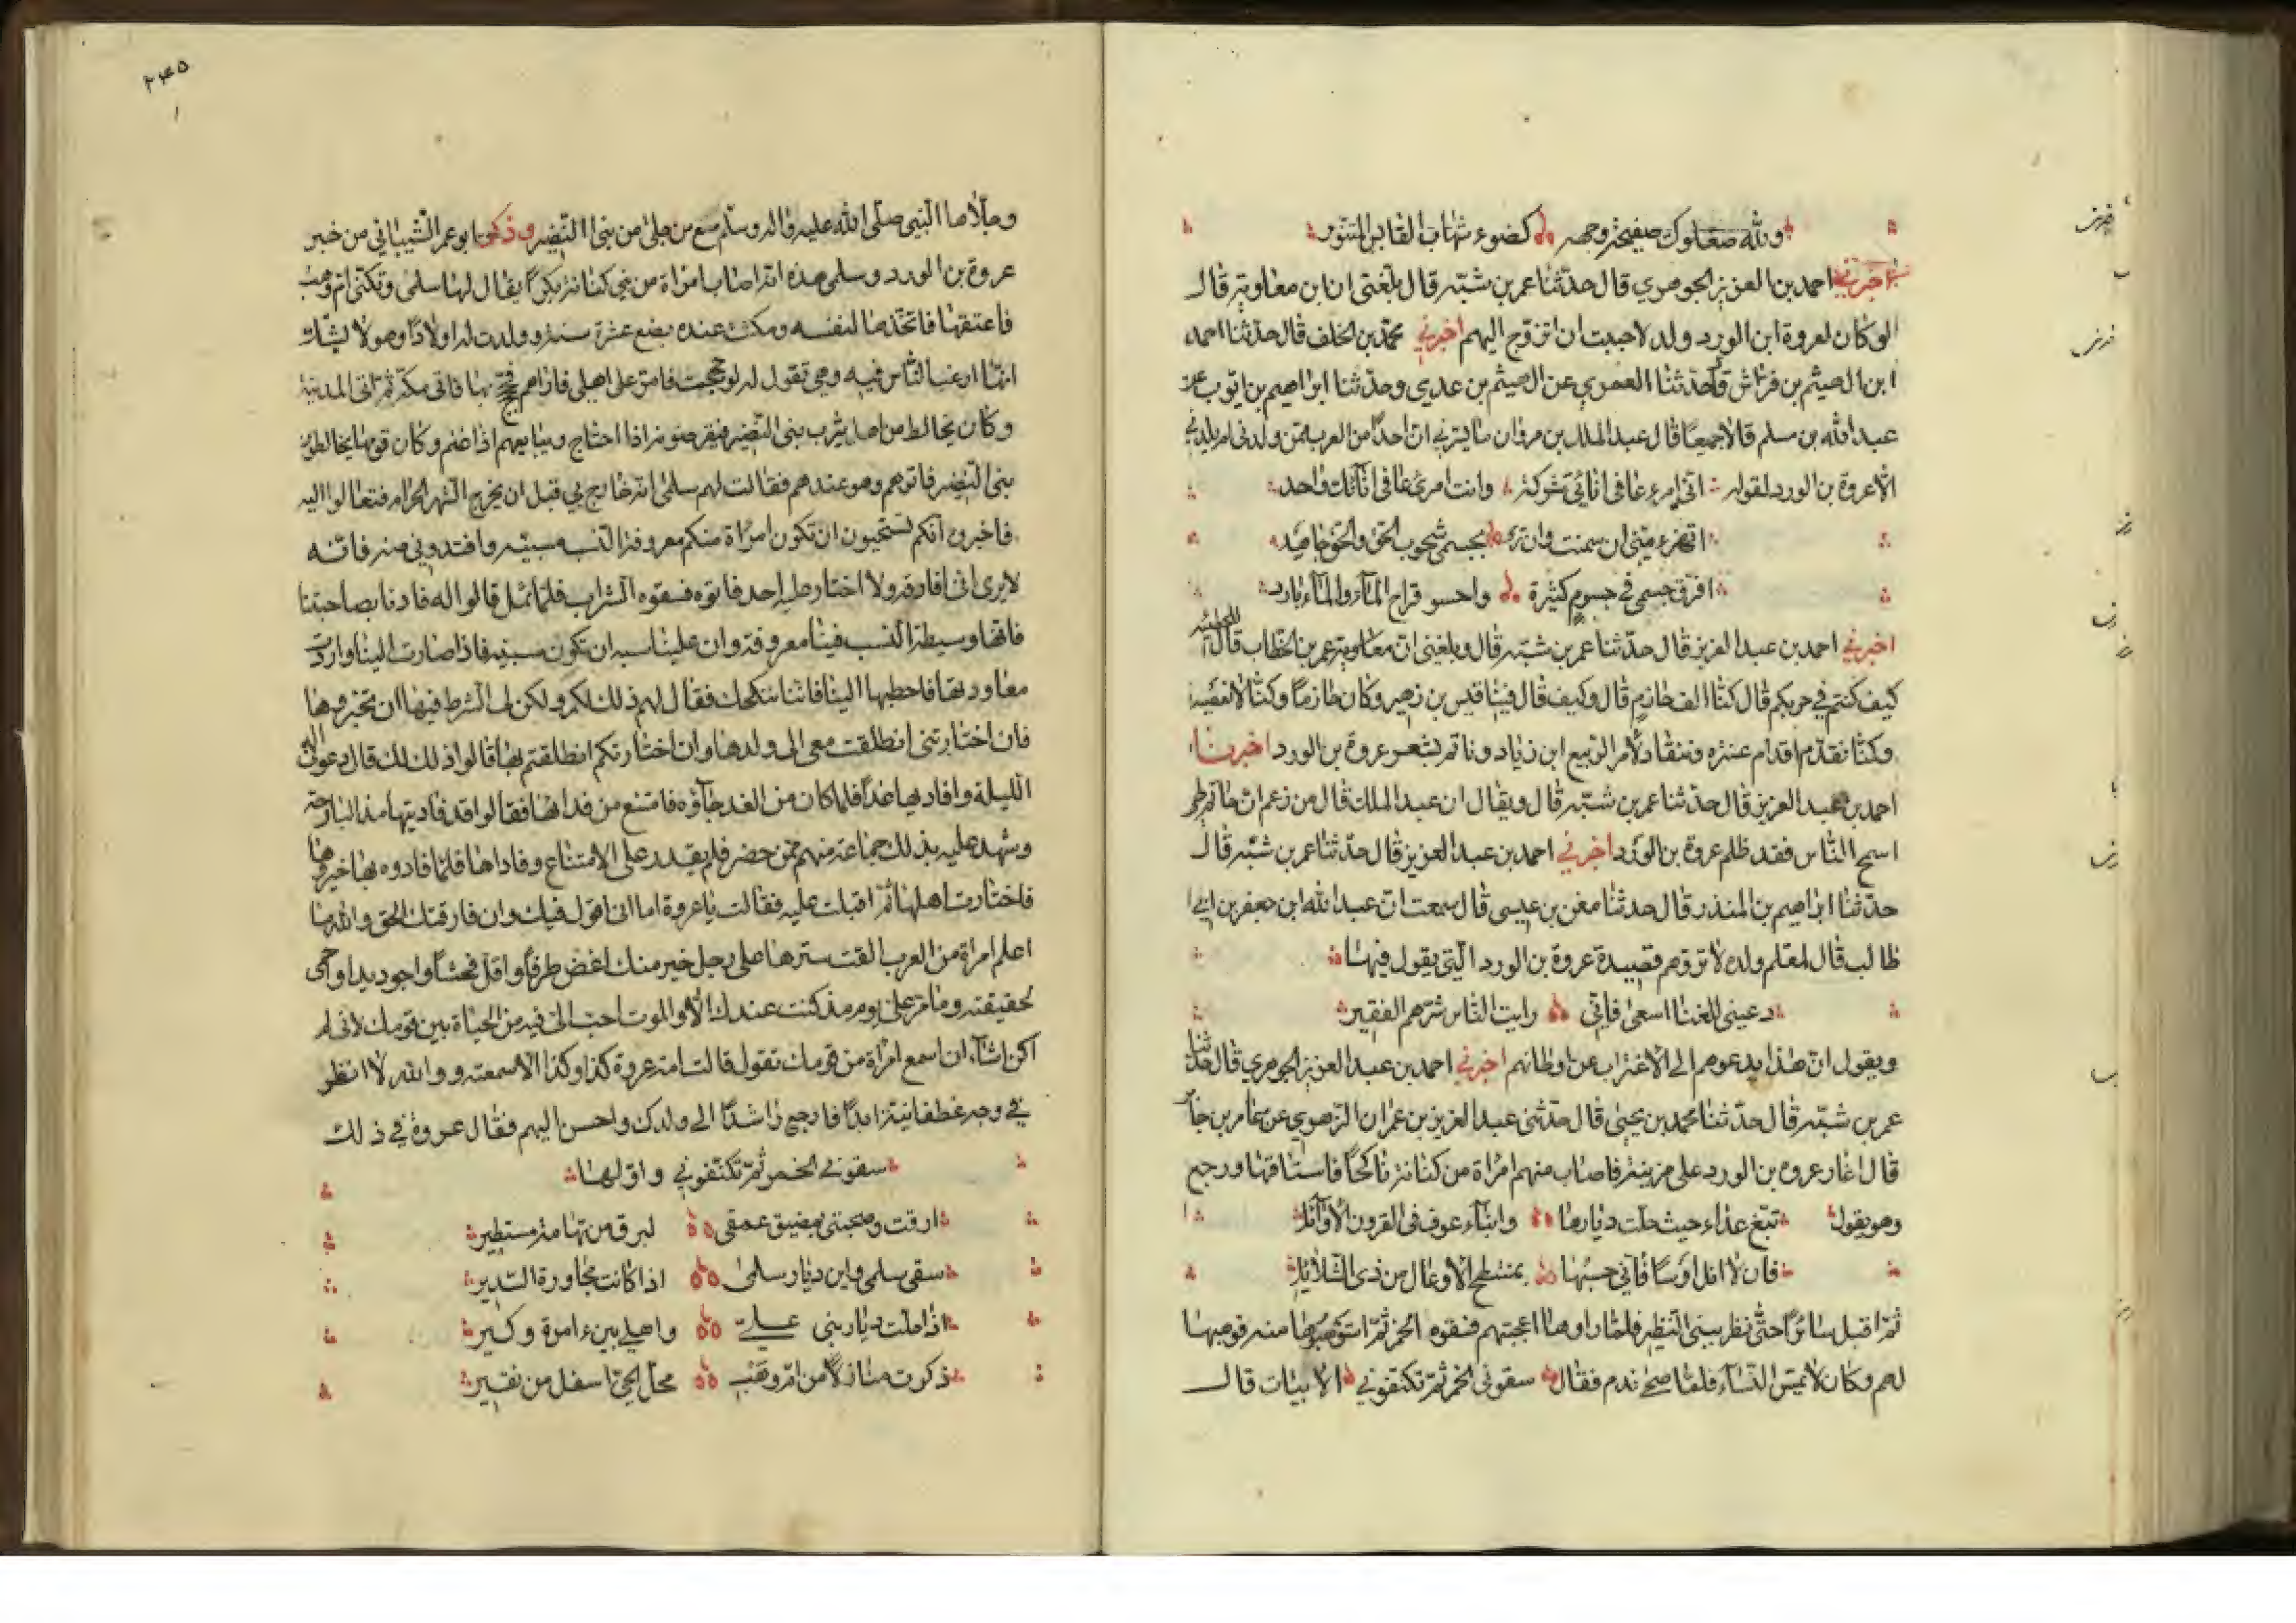 ولله صعلوك صفيحة وجهه كضوء شهاب القابس المتنور
اخبرني احمد بن العزيز الجوهري قال حدثنا عمر بن شبه قال بلغني ان ابن معاوية قال
لو كان لعروة ابن الورد ولد لاحببت ان اتزوج اليهم اخبرني محمد بن الخلف قال حدثنا احمد
ابن الهيثم بن فراش قال حدثنا العمري عن الهيثم بن عدي وحدثنا ابراهيم بن ايوب عن
عبد الله بن مسلم قالا جميعا قال عبد الملك بن مروان ما يسرني ان احدا من العرب ممن ولدني لم يلدني
الا عروة بن الورد لقوله اني امرء عافى انائي شركة وانت امرئ عافى انائك واحد
اتهزء مني ان سمنت وان ترى بجسمي شحوب الحق والحق جاهد
افرق جسمي في جسوم كثيرة واحسو قراح الماء والماء بارد
اخبرني احمد بن عبد العزيز قال حدثنا عمر بن شبه قال وبلغني ان عمر بن الخطاب قال للحطيئة
كيف كنتم في حربكم قال كنا الف حازم قال وكيف قال فينا قيس بن زهير وكان حازما وكنا لا نعصيه
وكنا نقدم اقدام عنتره وننقاد لامر الربيع ابن زياد وناتم بشعر عروة بن الورد اخبرنا
احمد بن عبد العزيز قال حدثنا عمر بن شبه قال ويقال ان عبد الملك قال من زعم ان حاتم طي
اسمح الناس فقد ظلم عروة بن الورد اخبرني احمد بن عبد العزيز قال حدثنا عمر بن شبه قال
حدثنا ابراهيم بن المنذر قال حدثنا معن بن عيسى قال سمعت ان عبد الله ابن جعفر بن ابي
طالب قال لمعلم ولده لا تروهم قصيدة عروة بن الورد التي يقول فيها
دعيني للغنا اسعى فاني رايت الناس شرهم الفقير
ويقول ان هذا يدعوهم الى الاغتراب عن اوطانهم اخبرني احمد بن عبد العزيز الجوهري قال حدثنا
عمر بن شبه قال حدثنا محمد بن يحيى قال حدثنى عبد العزيز بن عمران الزهري عن عامر بن جابر
قال اغار عروه بن الورد على مزينة فاصاب منهم امراة من كنانة ناكحا فاستاقها ورجع
وهو يقول تبغ عداء حيث حلت ديارها وابناء عوف فى القرون الاوائل
فان لا انل اوسا فاني حسبها بمنبطح الاوعال من ذى الشلائل
ثم اقبل سائرا حتى نظر ببنى النظير فلما راوها اعجبتهم فسقوه الخمر ثم استوهبوها منه فوهبها
لهم وكان لا يمس النساء فلما صحى ندم فقال سقوني الخمر ثم تكنفوني الابيات قال
٢٤٥
وجلاها النبي صلى الله عليه واله وسلم مع من جلى من بنى النضير وذكر ابو عمر الشيباني من خبر
عروة بن الورد وسلمى هذه انه اصاب امراة من بني كنانة بكرا يقال لها سلمى وتكنى ام وهب
فاعتقها فاتخذها لنفسه ومكثت عنده بضع عشرة سنة وولدت له اولادا وهو لا يشك
انها ارغب الناس فيه وهي تقول له لو حججت فامر على اهلي فاراهم فحج بها فاتى مكة ثم اتى المدينة
وكان يخالط من اهل يثرب بنى النضير فيقرضونه اذا احتاج ويبايعهم اذا غنم وكان قومها يخالطون
بنى النضير فاتوهم وهو عندهم فقالت لهم سلمى انه خارج بي قبل ان يخرج الشهر الحرام فتعالوا اليه
فاخبروه انكم تستحيون ان تكون امراة منكم معروفة النسب سبية وافتدوني منه فانه
لا يرى اني افارقه ولا اختار عليه احد فاتوه فسقوه الشراب فلما ثمل قالوا له فادنا بصاحبتنا
فانها وسيطة النسب فينا معروفة وان علينا سبة ان تكون سبية فاذا صارت الينا واردت
معاودتها فاخطبها الينا فاننا ننكحك فقال لهم ذلك لكم ولكن لى الشرط فيها ان تخيروها
فان اختارتنى انطلقت معي الى ولدها وان اختارتكم انطلقتم بها قالوا ذلك لك قال دعوني الهو
الليلة وافاديها غدا فلما كان من الغد جاؤه فامتنع من فدائها فقالوا قد فاديتها منذ البارحة
وشهد عليه بذلك جماعة منهم ممن حضر فلم يقدر على الامتناع وفاداها فلما فادوه بها خيروها
فاختارت اهلها ثم اقبلت عليه فقالت يا عروة اما اني اقول فيك وان فارقتك الحق والله ما
اعلم امراة من العرب القت سترها على رجل خير منك اغض طرفا واقل فحشا واجود يدا واحمى
لحقيقته وما مر علي يوم مذ كنت عندك الا والموت احب الي فيه من الحياة بين قومك لاني لم
اكن اشاء ان اسمع امراة من قومك تقول قالت امة عروة كذا وكذا الا سمعته ووالله لا انظر
في وجه غطفانية ابدا فارجع راشدا الى ولدك واحسن اليهم فقال عروة في ذلك
سقوني الخمر ثم تكنفوني واولها
ارقت وصحبتي بمضيق عمق لبرق من تهامة مستطير
سقى سلمى واين ديار سلمى اذا كانت مجاورة السدير
اذا حلت بديار بني علي واهلي بين امرة وكير
ذكرت منازلا من ام وهب محل الحي اسفل من نقير